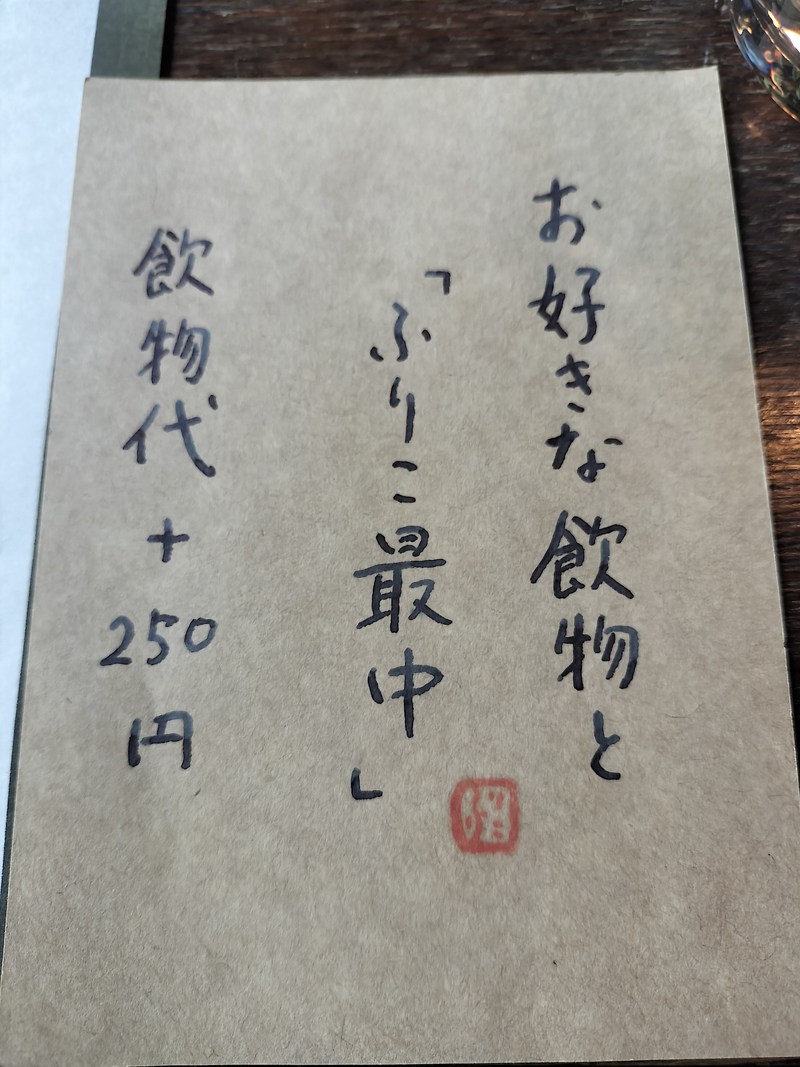 お好きな飲物と
「ふりこ最中」
飲物代+250円